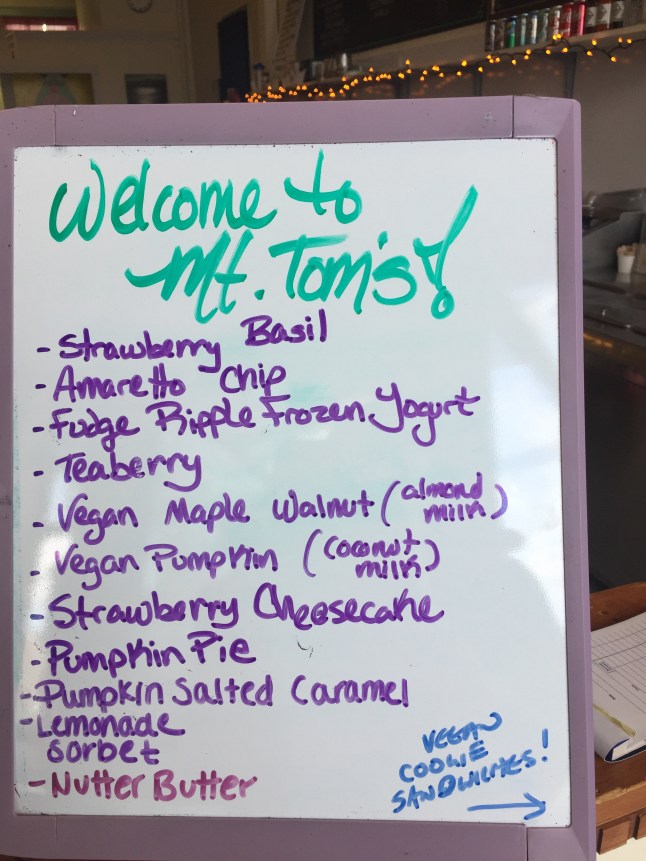 Welcome to
Mt. Tom's!
- Strawberry Basil
- Amaretto Chip
- Fudge Ripple Frozen Yogurt
- Teaberry
- Vegan Maple Walnut (almond milk)
- Vegan Pumpkin (coconut milk)
- Strawberry Cheesecake
- Pumpkin Pie
- Pumpkin Salted Caramel
- Lemonade
Sorbet
- Nutter Butter
VEGAN
COOKIE
SANDWICHES!